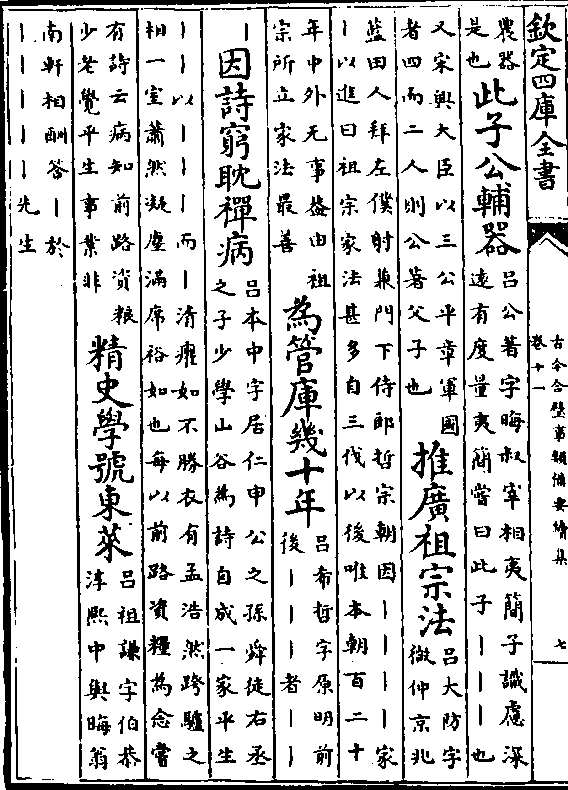 欽定四庫全書
古今合璧事類備要續集
卷十一
七
農器
是也
此子公輔器
呂公著字晦叔宰相夷簡子識慮深
遠有度量夷簡嘗曰此子||||也
又宋興大臣以三公平章軍國
者四而二人則公著父子也
推廣祖宗法
呂大防字
微仲京兆
藍田人拜左僕射兼門下侍郎哲宗朝因||||家
|以進曰祖宗家法甚多自三代以後唯本朝百二十
年中外无事蓋由祖
宗所立家法最善
為管庫幾十年
呂希哲字原明前
後||||者||
|
因詩窮耽禪病
呂本中字居仁申公之孫舜徒右丞
之子少學山谷為詩自成一家平生
||以|||而|清癯如不勝衣有孟浩然跨驢之
相一室蕭然凝塵滿席裕如也每以前路資糧為念嘗
有詩云病知前路資糧
少老覺平生事業非
精史學號東萊
呂祖謙字伯恭
淳熙中與晦翁
南軒相酬答|於
|||||先生